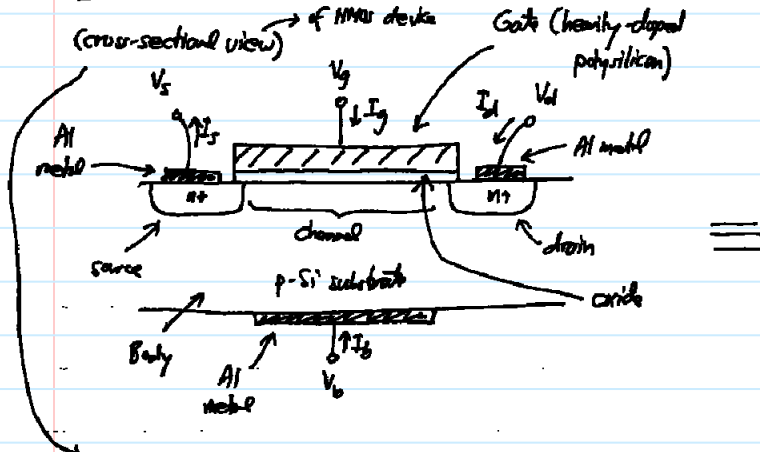 (cross-sectional view) of NMOS device
Gate (heavily-doped
polysilicon)
Vs
Vg
Vd
Is
Ig
Id
Al
metal
Al metal
n+
n+
channel
source
drain
p-Si substrate
oxide
Body
Ib
Al
metal
Vb